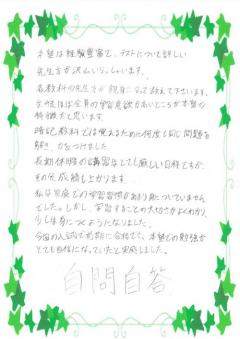 本塾は経験豊富で、テストについて詳しい
先生方が沢山いらっしゃいます。
各教科の先生方が親身になって教えて下さいます。
生徒ほぼ全員の学習意欲が高いところが本塾の
特徴だと思います。
暗記教科では覚えるために何度も同じ問題を
解き、力をつけました。
長期休暇の講習はとても厳しい日程ですが、
その分成績も上がります。
私は家庭での学習習慣があまり身についていませ
んでした。しかし、学習することの大切さがよくわかり、
少しずつ身につくようになりました。
今回の入試で前期に合格でき、本塾での勉強が
とても自信になっていたと実感しました。
自問自答